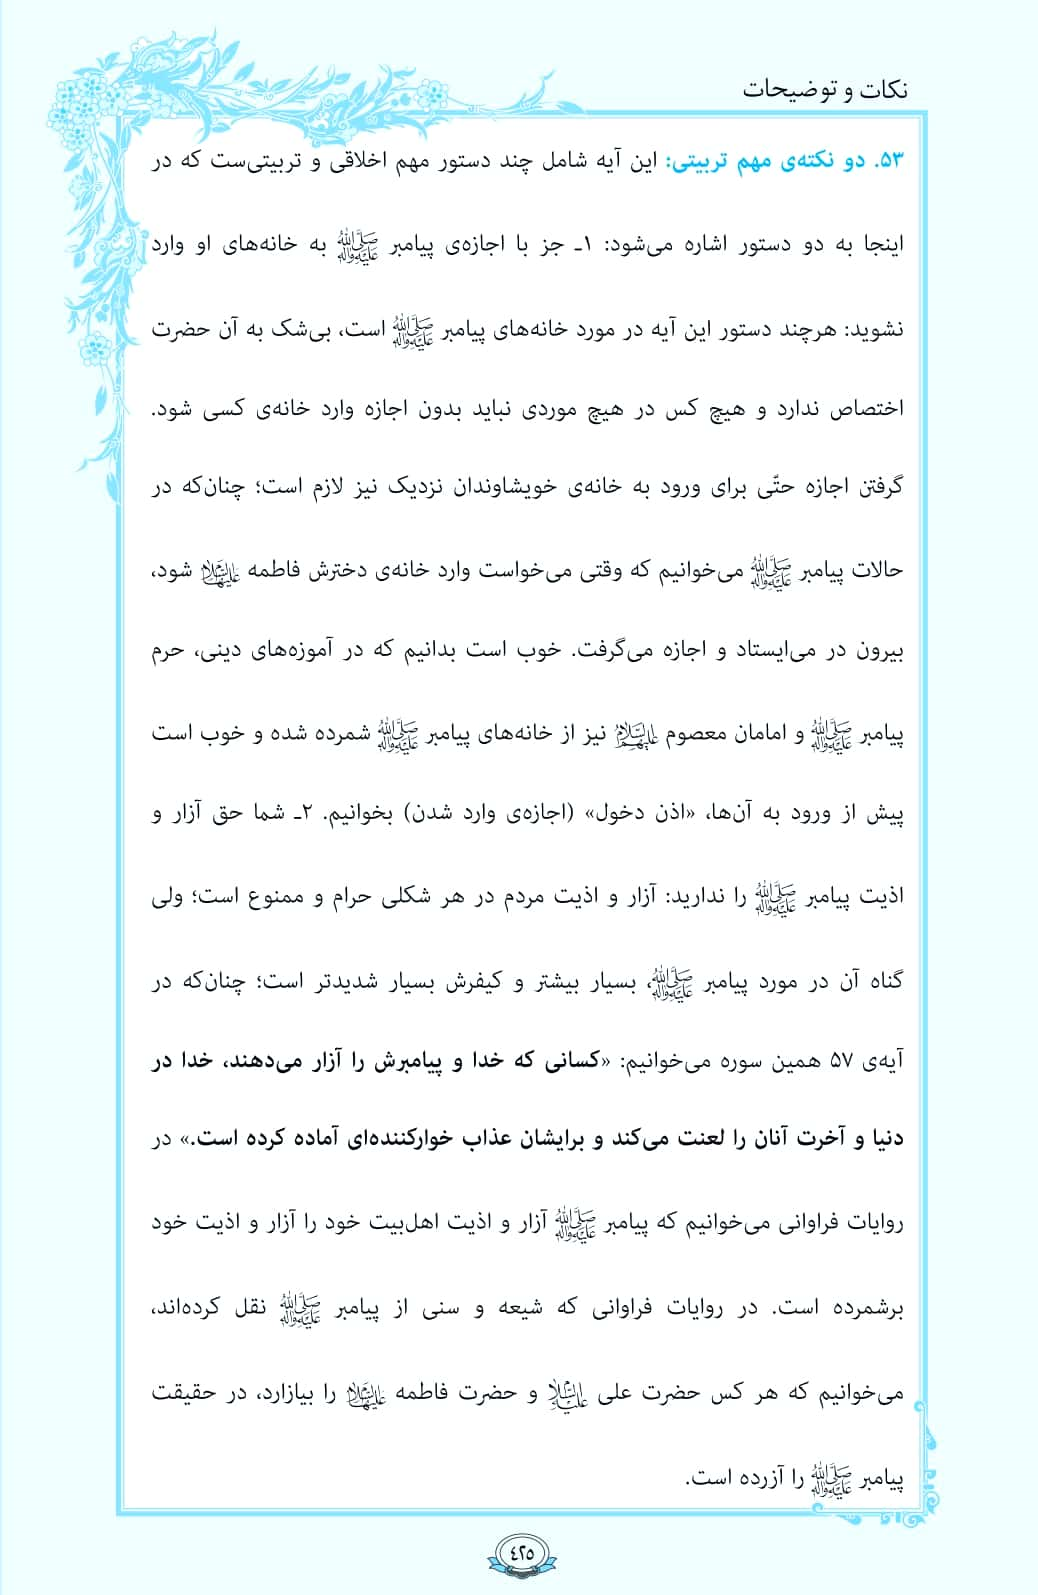 نکات و توضیحات
۵۳. دو نکته‌ی مهم تربیتی: این آیه شامل چند دستور مهم اخلاقی و تربیتی‌ست که در
اینجا به دو دستور اشاره می‌شود: ۱ـ جز با اجازه‌ی پیامبر ﷺ به خانه‌های او وارد
نشوید: هرچند دستور این آیه در مورد خانه‌های پیامبر ﷺ است، بی‌شک به آن حضرت
اختصاص ندارد و هیچ کس در هیچ موردی نباید بدون اجازه وارد خانه‌ی کسی شود.
گرفتن اجازه حتّی برای ورود به خانه‌ی خویشاوندان نزدیک نیز لازم است؛ چنان‌که در
حالات پیامبر ﷺ می‌خوانیم که وقتی می‌خواست وارد خانه‌ی دخترش فاطمه علیهاالسلام شود،
بیرون در می‌ایستاد و اجازه می‌گرفت. خوب است بدانیم که در آموزه‌های دینی، حرم
پیامبر ﷺ و امامان معصوم علیهم‌السلام نیز از خانه‌های پیامبر ﷺ شمرده شده و خوب است
پیش از ورود به آن‌ها، «اذن دخول» (اجازه‌ی وارد شدن) بخوانیم. ۲ـ شما حق آزار و
اذیت پیامبر ﷺ را ندارید: آزار و اذیت مردم در هر شکلی حرام و ممنوع است؛ ولی
گناه آن در مورد پیامبر ﷺ، بسیار بیشتر و کیفرش بسیار شدیدتر است؛ چنان‌که در
آیه‌ی ۵۷ همین سوره می‌خوانیم: «کسانی که خدا و پیامبرش را آزار می‌دهند، خدا در
دنیا و آخرت آنان را لعنت می‌کند و برایشان عذاب خوارکننده‌ای آماده کرده است.» در
روایات فراوانی می‌خوانیم که پیامبر ﷺ آزار و اذیت اهل‌بیت خود را آزار و اذیت خود
برشمرده است. در روایات فراوانی که شیعه و سنی از پیامبر ﷺ نقل کرده‌اند،
می‌خوانیم که هر کس حضرت علی علیه‌السلام و حضرت فاطمه علیهاالسلام را بیازارد، در حقیقت
پیامبر ﷺ را آزرده است.
۴۲۵